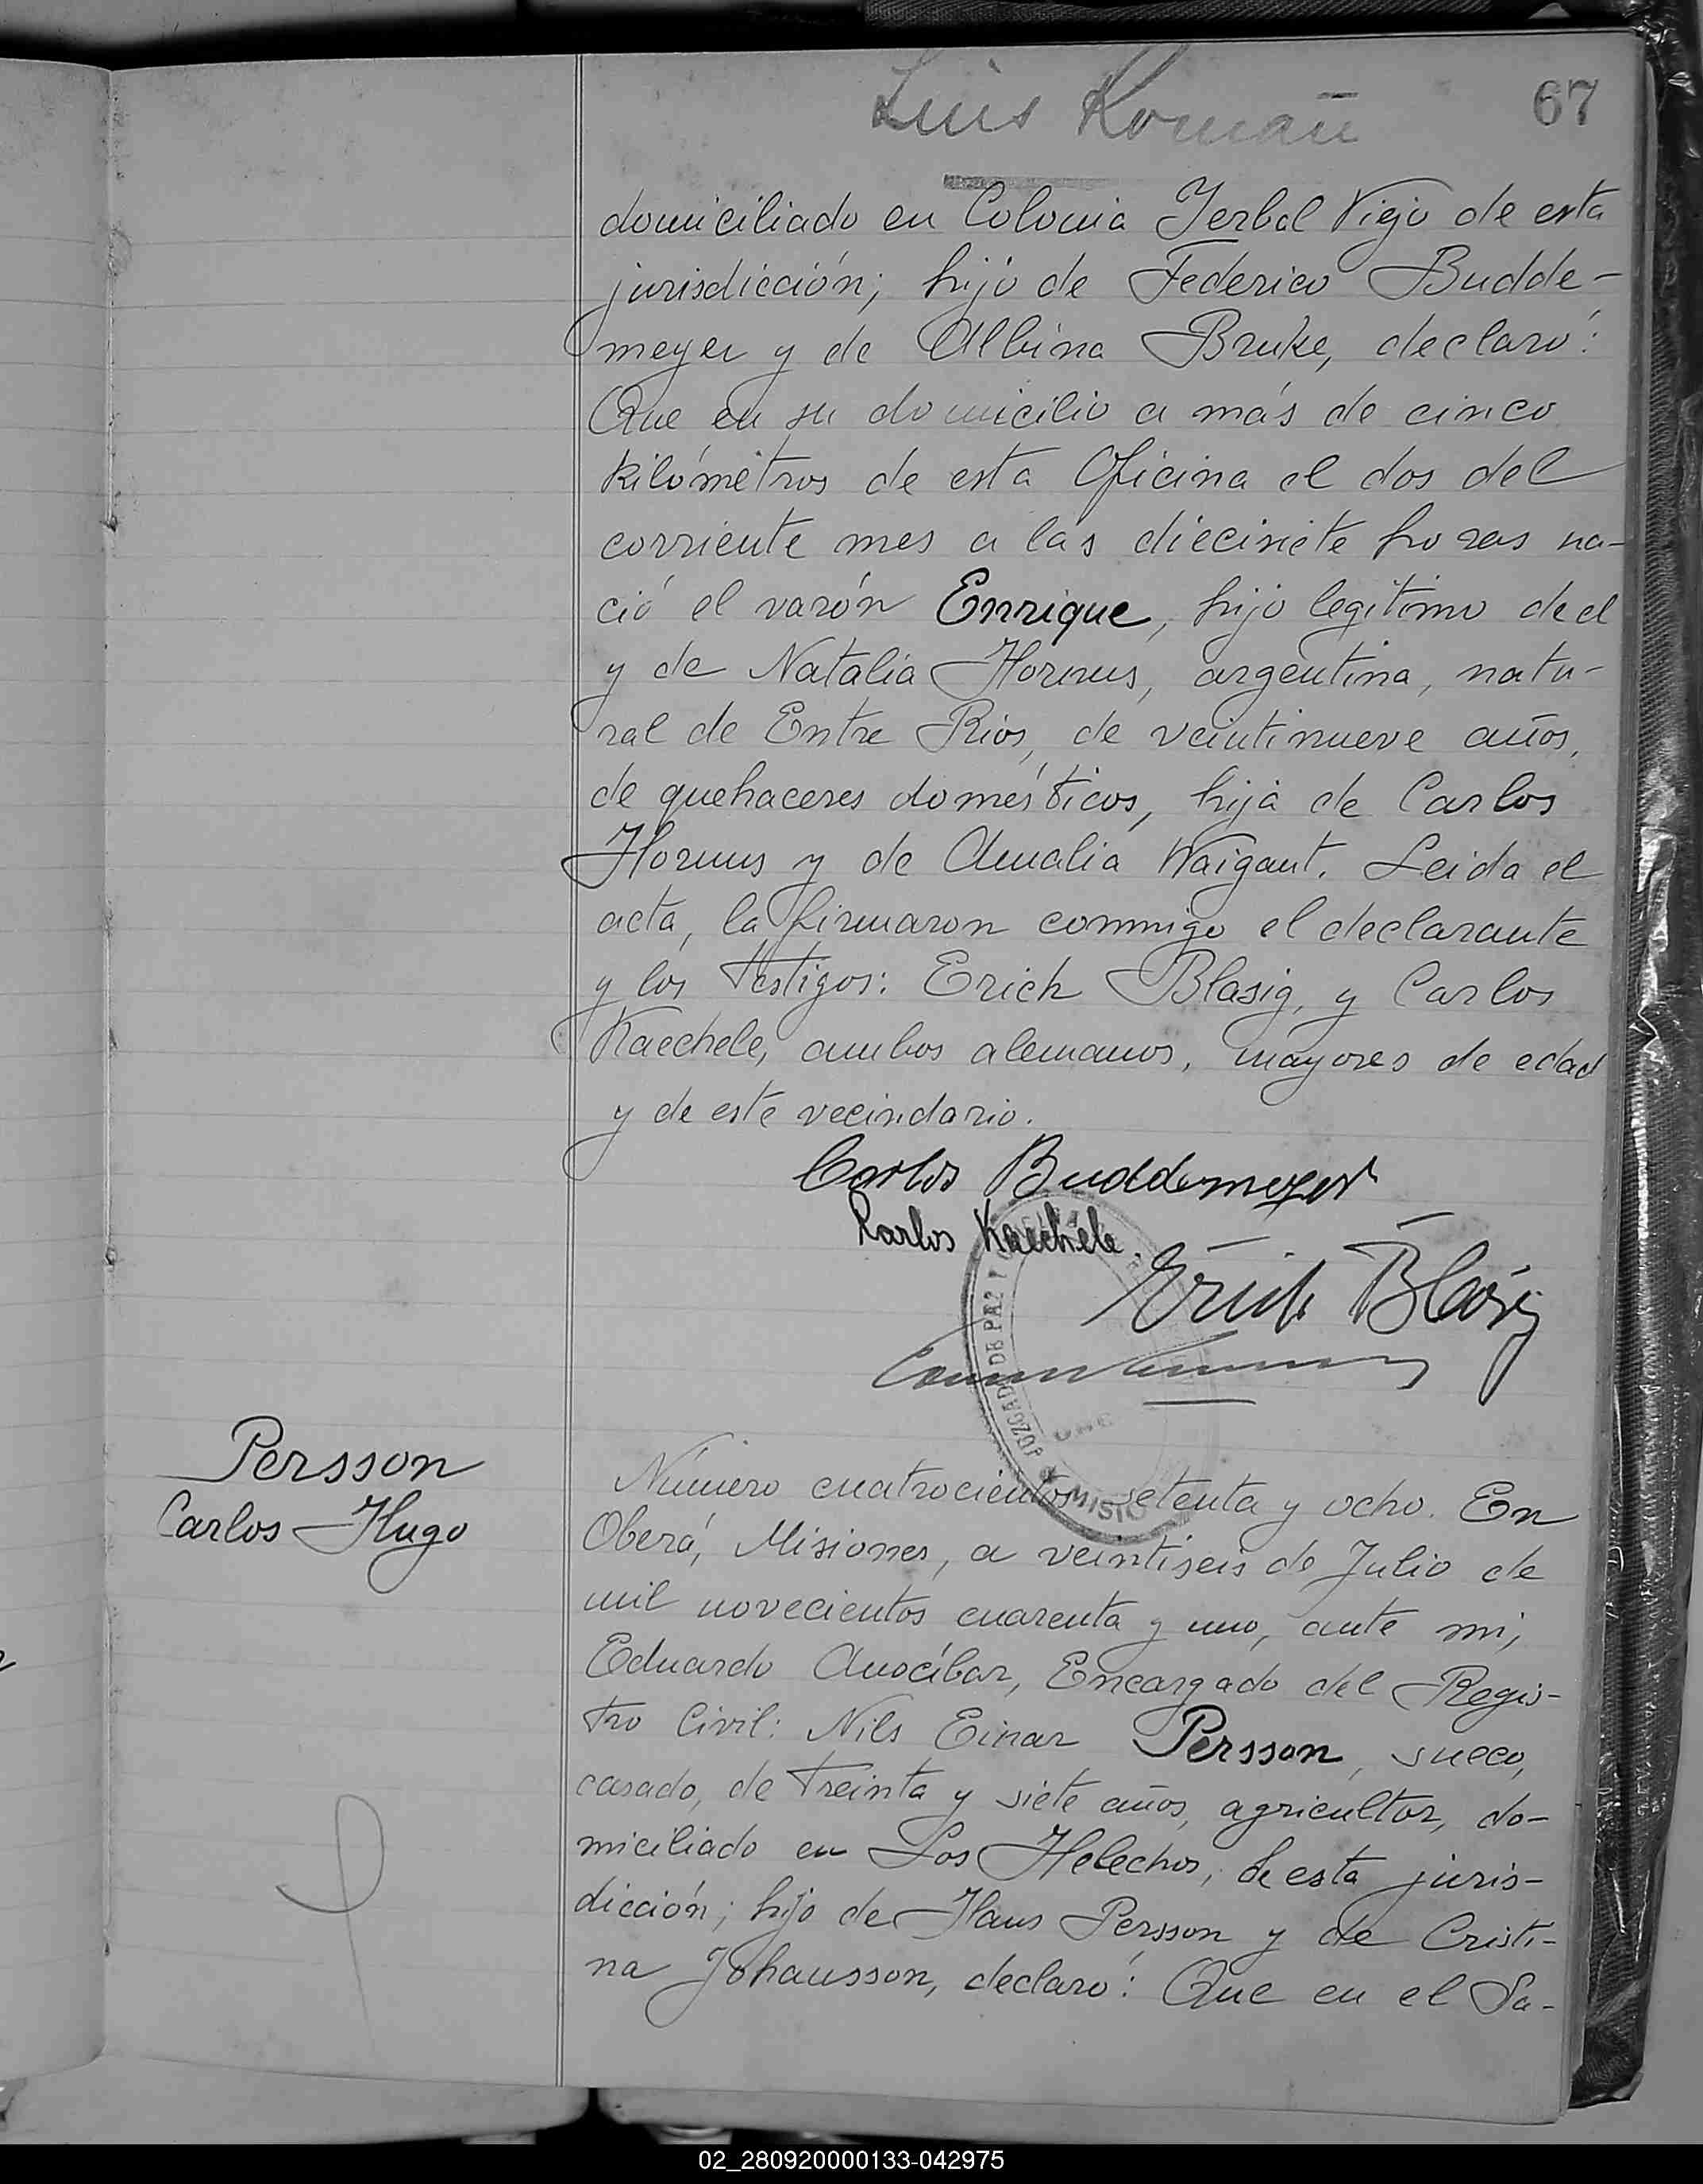 Luis Román
67
domiciliado en Colonia Yerbal Viejo de esta
jurisdicción; hijo de Federico Budde-
meyer y de Albina Bruke, declaró:
Que en su domicilio a más de cinco
kilómetros de esta Oficina el dos del
corriente mes a las diecisiete horas na-
ció el varón Enrique, hijo legítimo de el
y de Natalia Hornus, argentina, natu-
ral de Entre Ríos, de veintinueve años,
de quehaceres domésticos, hija de Carlos
Hornus y de Amalia Waigant. Leida el
acta, la firmaron conmigo el declarante
y los testigos: Erich Blasig, y Carlos
Kaechele, ambos alemanes, mayores de edad
y de este vecindario.
Carlos Buddemeyer
Karlos Kaechele.
Erich Blasig
JUZGADO DE PAZ
MISIO
Persson
Carlos Hugo
Número cuatrocientos setenta y ocho. En
Oberá, Misiones, a veintiseis de Julio de
mil novecientos cuarenta y uno, ante mi,
Eduardo Anocíbar, Encargado del Regis-
tro Civil: Nils Einar Persson, sueco,
casado, de treinta y siete años, agricultor, do-
miciliado en Los Helechos, de esta juris-
dicción; hijo de Hans Persson y de Cristi-
na Johansson, declaró: Que en el Sa-
02_280920000133-042975